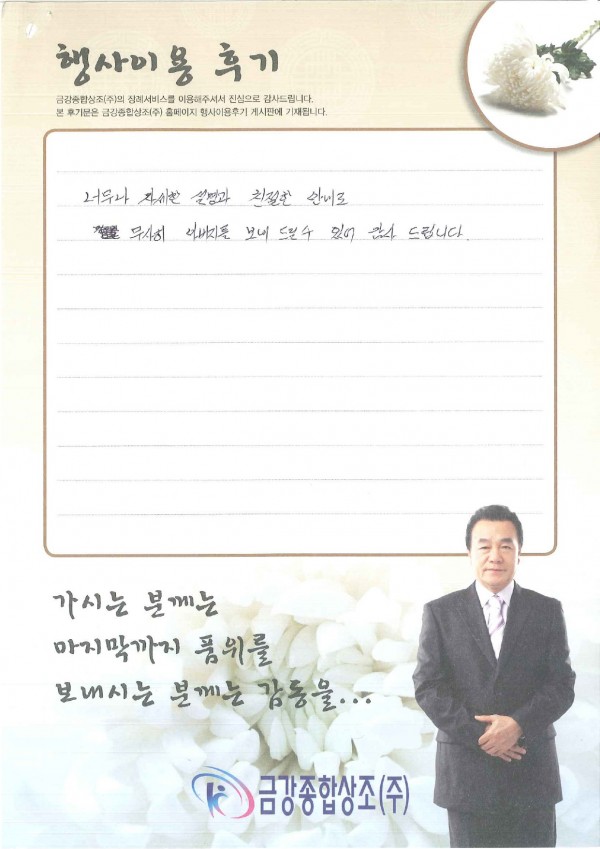 행사이용 후기
금강종합상조(주)의 장례서비스를 이용해주셔서 진심으로 감사드립니다.
본 후기문은 금강종합상조(주) 홈페이지 행사이용후기 게시판에 기재됩니다.
너무나 자세한 설명과 친절한 안내로
무사히 아버지를 보내 드릴수 있어 감사 드립니다.
가시는 분께는
마지막까지 품위를
보내시는 분께는 감동을...
금강종합상조(주)